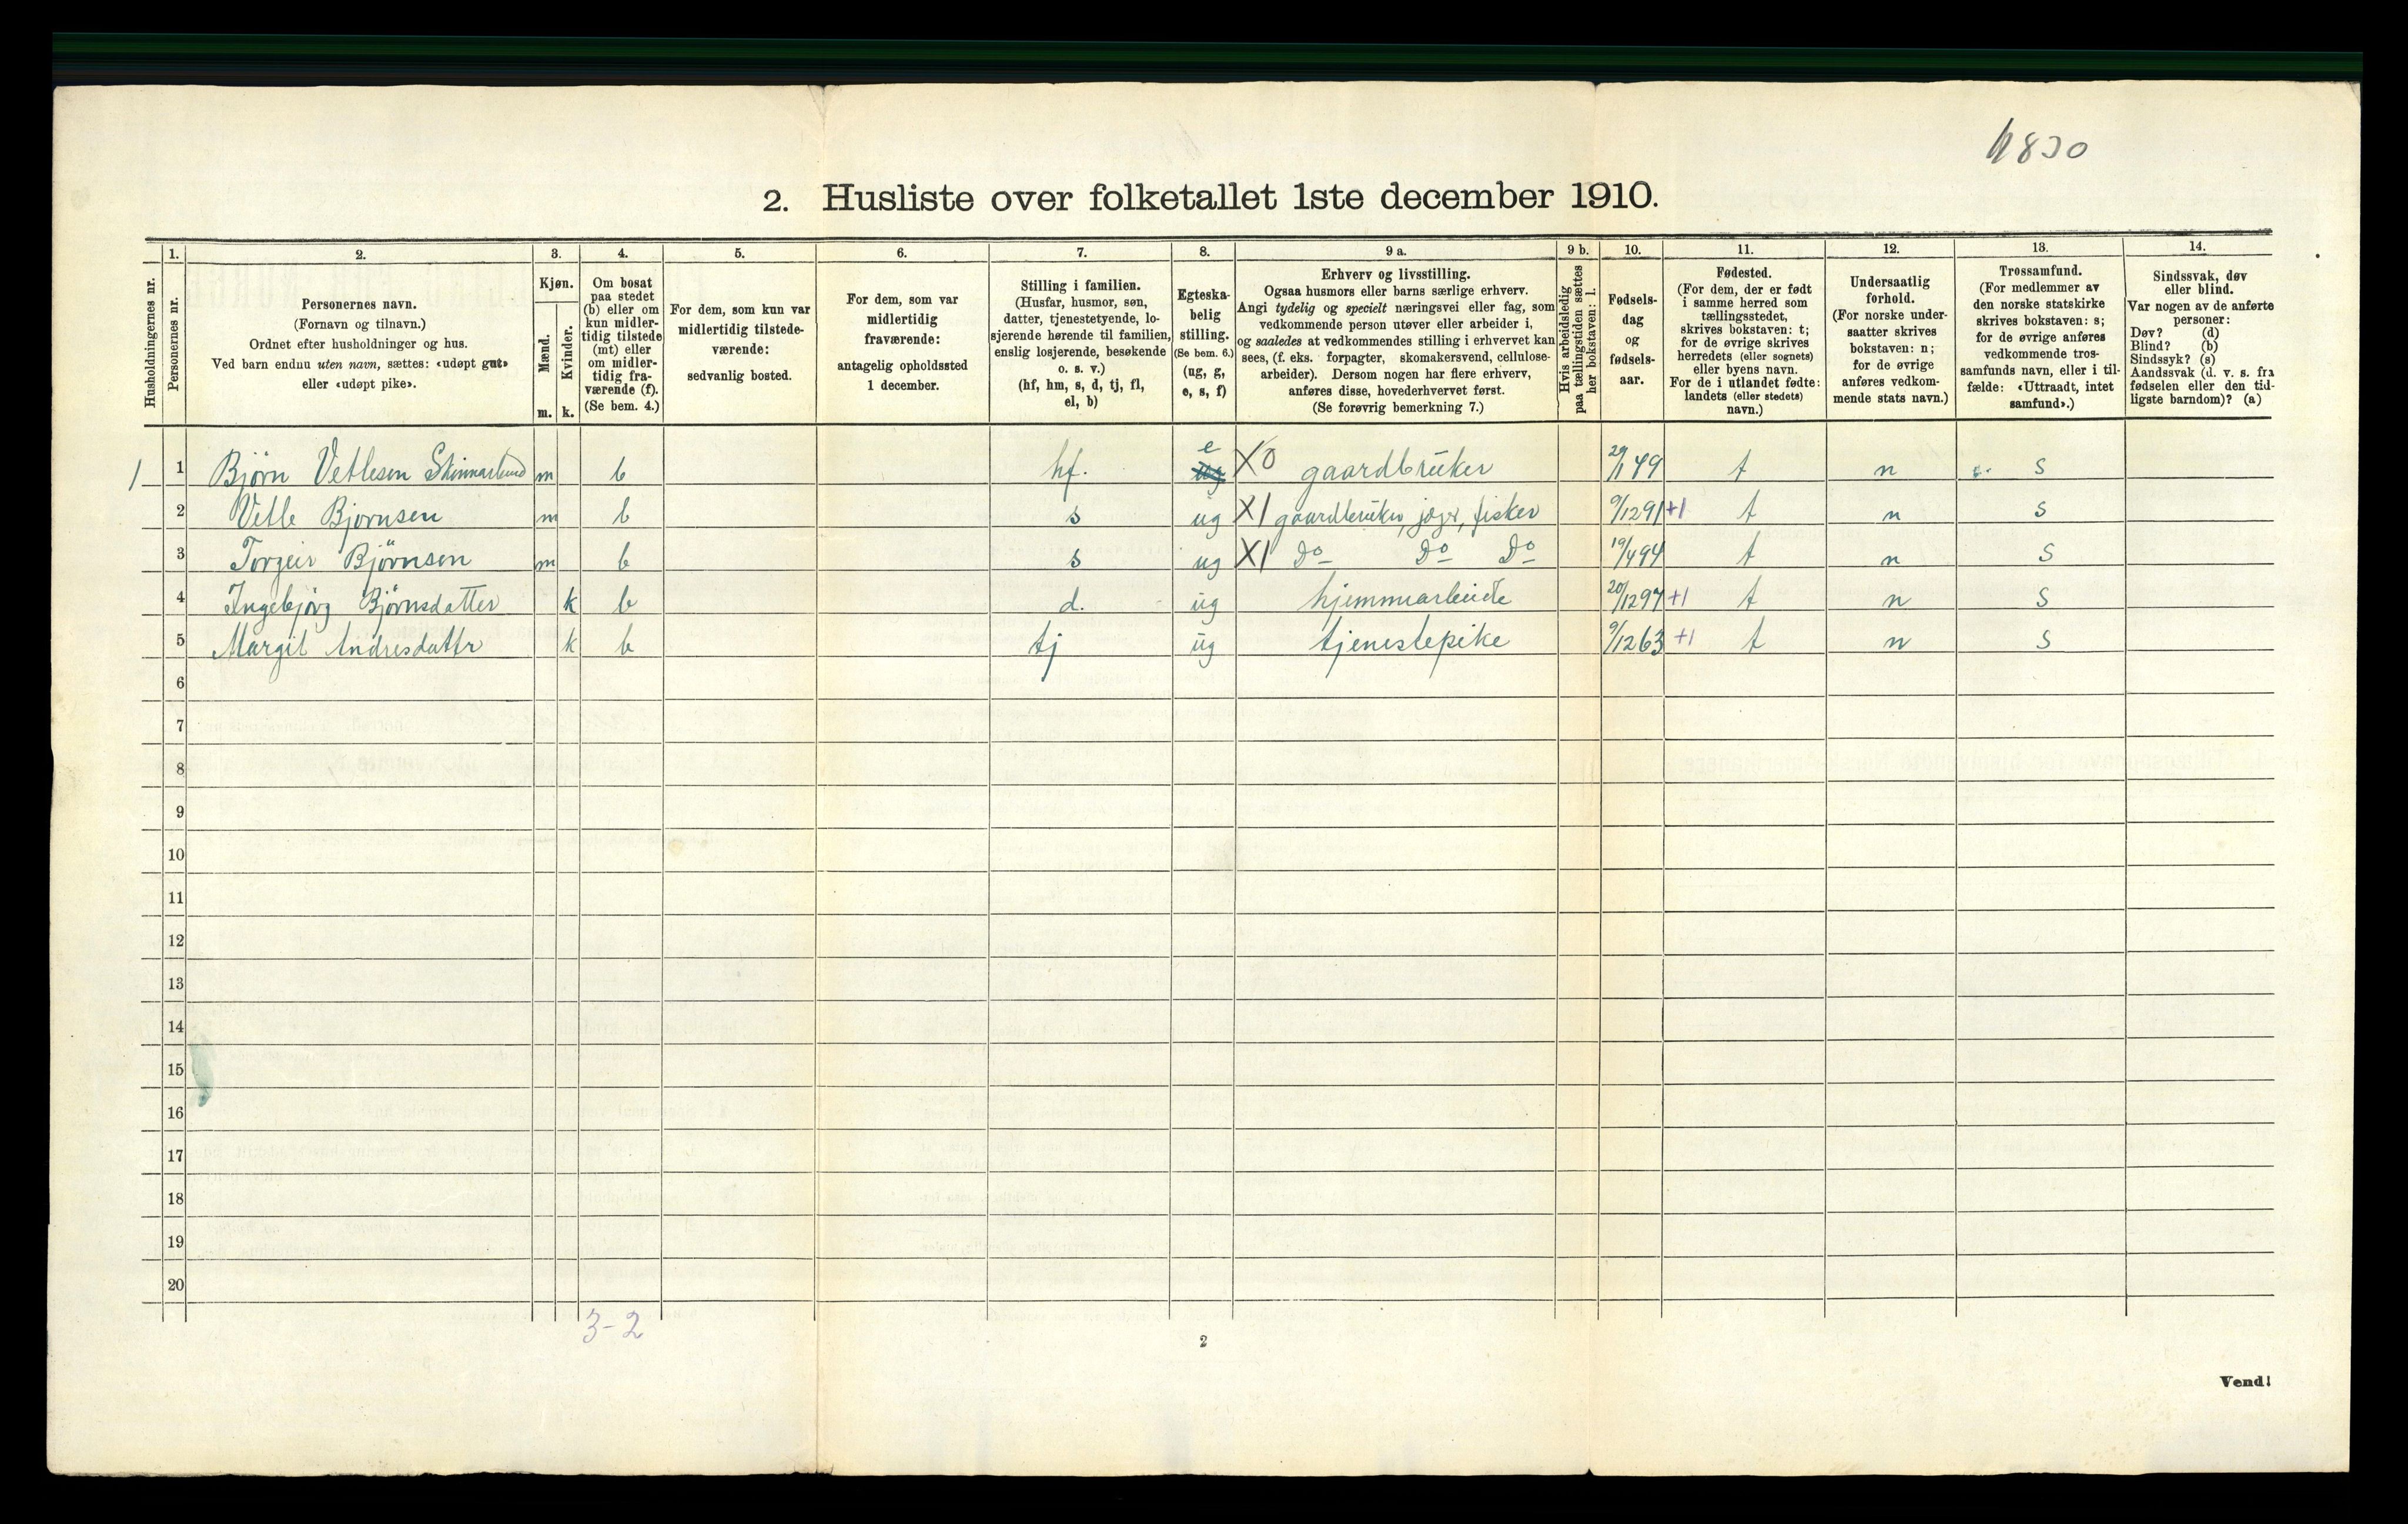 1830
2. Husliste over folketallet 1ste december 1910.
Husholdningernes nr.
1.
Personernes nr.
2.
Personernes navn.
(Fornavn og tilnavn.)
Ordnet efter husholdninger og hus.
Ved barn endnu uten navn, sættes: «udøpt gut»
eller «udøpt pike».
3.
Kjøn.
Mænd.
m.
Kvinder.
k.
4.
Om bosat
paa stedet
(b) eller om
kun midler-
tidig tilstede
(mt) eller
om midler-
tidig fra-
værende (f).
(Se bem. 4.)
5.
For dem, som kun var
midlertidig tilstede-
værende:
sedvanlig bosted.
6.
For dem, som var
midlertidig
fraværende:
antagelig opholdssted
1 december.
7.
Stilling i familien.
(Husfar, husmor, søn,
datter, tjenestetyende, lo-
sjerende hørende til familien,
enslig losjerende, besøkende
o. s. v.)
(hf, hm, s, d, tj, fl,
el, b)
8.
Egteska-
belig
stilling.
(Se bem. 6.)
(ug, g,
e, s, f)
9 a.
Erhverv og livsstilling.
Ogsaa husmors eller barns særlige erhverv.
Angi tydelig og specielt næringsvei eller fag, som
vedkommende person utøver eller arbeider i,
og saaledes at vedkommendes stilling i erhvervet kan
sees, (f. eks. forpagter, skomakersvend, cellulose-
arbeider). Dersom nogen har flere erhverv,
anføres disse, hovederhvervet først.
(Se forøvrig bemerkning 7.)
9 b.
Hvis arbeidsledig
paa tællingstiden sættes
her bokstaven: l.
10.
Fødsels-
dag
og
fødsels-
aar.
11.
Fødested.
(For dem, der er født
i samme herred som
tællingsstedet,
skrives bokstaven: t;
for de øvrige skrives
herredets (eller sognets)
eller byens navn.
For de i utlandet fødte:
landets (eller stedets)
navn.)
12.
Undersaatlig
forhold.
(For norske under-
saatter skrives
bokstaven: n;
for de øvrige
anføres vedkom-
mende stats navn.)
13.
Trossamfund.
(For medlemmer av
den norske statskirke
skrives bokstaven: s;
for de øvrige anføres
vedkommende tros-
samfunds navn, eller i til-
fælde: «Uttraadt, intet
samfund».)
14.
Sindssvak, døv
eller blind.
Var nogen av de anførte
personer:
Døv? (d)
Blind? (b)
Sindssyk? (s)
Aandssvak (d. v. s. fra
fødselen eller den tid-
ligste barndom)? (a)
1 1 Bjørn Vetlesen Skinnarland m b hf. e ug X0 gaardbruker 29/1 49 t n s
2 Vetle Bjørnsen m b s ug X1 gaardbruker, jæger, fisker 9/12 91 +1 t n s
3 Torgeir Bjørnsen m b s ug X1 Do Do Do 19/4 94 t n s
4 Ingebjørg Bjørnsdatter k b d. ug hjemmearbeide 20/12 97 +1 t n s
5 Margit Andresdattr k b tj ug tjenestepike 9/12 63 +1 t n s
6
7
8
9
10
11
12
13
14
15
16
17
18
19
20
3-2
2
Vend!